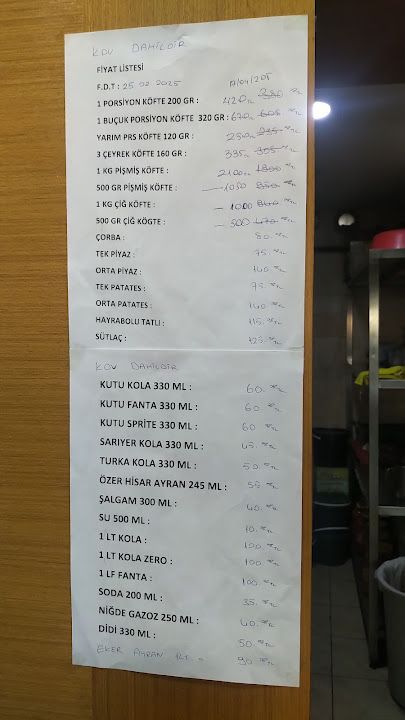 KDV DAHİLDİR
FİYAT LİSTESİ
F.D.T : 25 02 2025
1 PORSİYON KÖFTE 200 GR : 420TL
1 BUÇUK PORSİYON KÖFTE 320 GR : 670TL
YARIM PRS KÖFTE 120 GR :
3 ÇEYREK KÖFTE 160 GR : 335TL
1 KG PİŞMİŞ KÖFTE : 2100TL
500 GR PİŞMİŞ KÖFTE : 1050
1 KG ÇİĞ KÖFTE : 1000
500 GR ÇİĞ KÖGTE : 500
ÇORBA : 80.TL
TEK PİYAZ : 75.TL
ORTA PİYAZ : 140.TL
TEK PATATES : 75.TL
ORTA PATATES : 140.TL
HAYRABOLU TATLI : 115.TL
SÜTLAÇ : 125.TL
KDV DAHİLDİR
KUTU KOLA 330 ML : 60.TL
KUTU FANTA 330 ML : 60.TL
KUTU SPRİTE 330 ML : 60.TL
SARIYER KOLA 330 ML : 45.TL
TURKA KOLA 330 ML : 50.TL
ÖZER HİSAR AYRAN 245 ML : 55.TL
ŞALGAM 300 ML : 40.TL
SU 500 ML : 10.TL
1 LT KOLA : 100.TL
1 LT KOLA ZERO : 100.TL
1 LF FANTA : 100.TL
SODA 200 ML : 35.TL
NİĞDE GAZOZ 250 ML : 40.TL
DİDİ 330 ML : 50.TL
EKER AYRAN 1LT = 90.TL